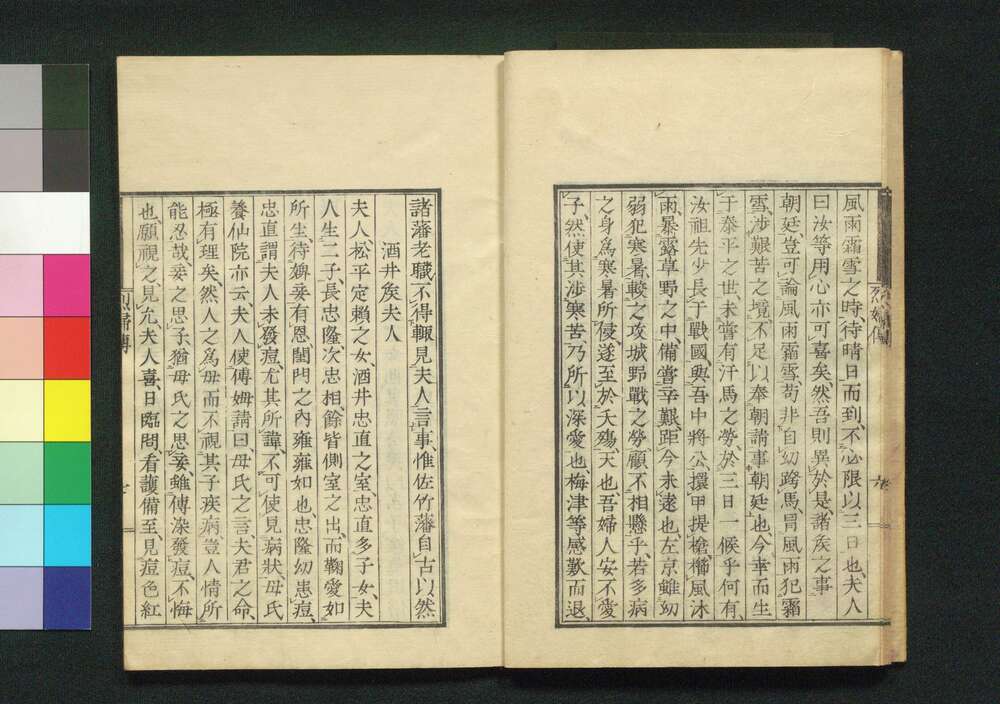 風雨霜雪之時、待晴日而到、不必限以三日也、夫人
曰、汝等用心亦可喜矣、然吾則異於是、諸矦之事
朝廷、豈可論風雨霜雪、苟非自幼跨馬、冐風雨犯霜
雪、渉艱苦之境、不足以奉朝請事朝廷也、今幸而生
于泰平之世、未嘗有汗馬之勞、於三日一候乎何有、
汝祖先少長于戰國、與吾中將公、擐甲提槍、櫛風沐
雨、暴露草野之中、備嘗辛艱、距今未遠也、左京雖幼
弱犯寒暑、較之攻城野戰之勞、顧不相懸乎、若多病
之身、爲寒暑所侵、遂至於夭殤、天也、吾婦人安不愛
子、然使其渉寒苦、乃所以深愛也、梅津等感歎而退、
諸藩老職、不得輙見夫人言事、惟佐竹藩自古以然
酒井矦夫人
夫人、松平定賴之女、酒井忠直之室、忠直多子女、夫
人生二子、長忠隆、次忠相、餘皆側室之出、而鞠愛如
所生、待婢妾有恩、閨門之內雍雍如也、忠隆幼患痘、
忠直謂夫人未發痘、尤其所諱、不可使見病狀、母氏
養仙院亦云、夫人使傅姆請曰、母氏之言、夫君之命、
極有理矣、然人之爲母、而不視其子疾病、豈人情所
能忍哉、妾之思子、猶母氏之思妾、雖傳染發痘、不悔
也、願視之、見允、夫人喜、日臨問、看護備至、見痘色紅
烈婦傳
烈婦傳
六